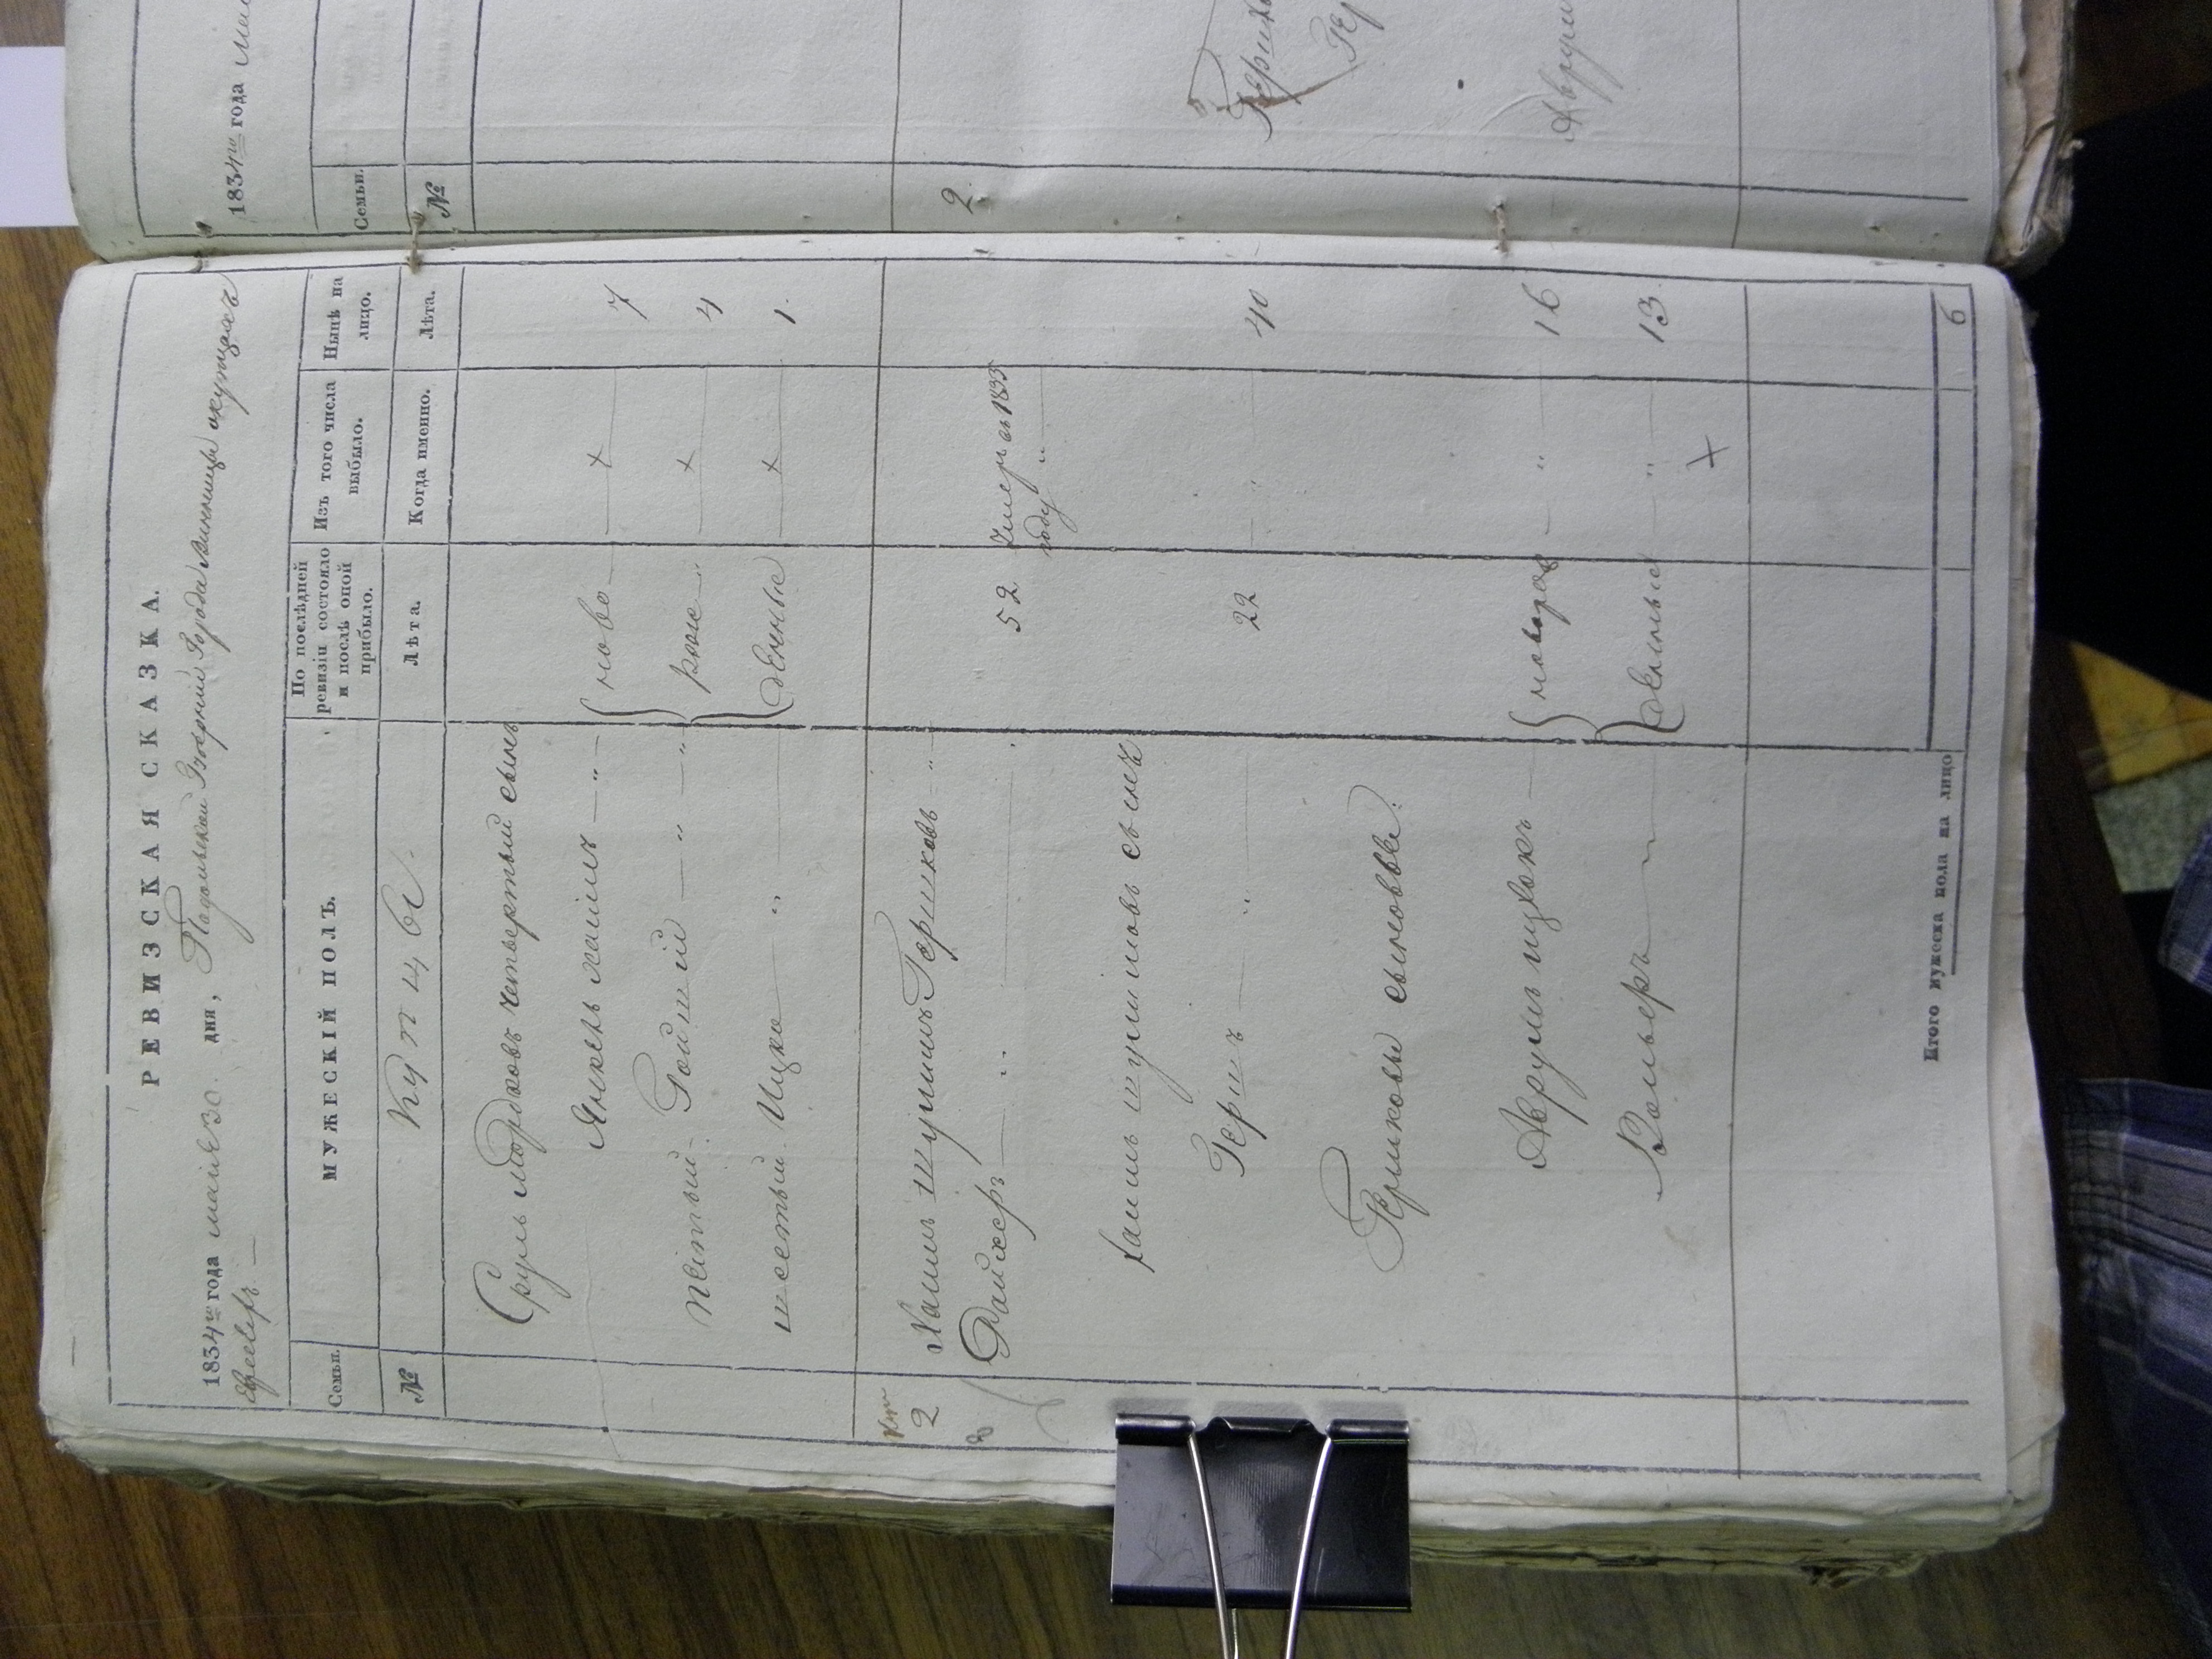 РЕВИЗСКАЯ СКАЗКА.
1834го года маия 30. дня, Подольской Губернии Города Винницы о купцах
Евреях. —
Семьи.
МУЖЕСКІЙ ПОЛЪ.
По послѣдней ревизіи состояло и послѣ оной прибыло.
Изъ того числа выбыло.
Нынѣ на лицо.
№
Купцы.
Лѣта.
Когда именно.
Лѣта.
Сруль Мордковъ четвертый сынъ
Янкель хаимъ — " — ново — + — 7
пятый Гойший — " — " рож — " — + — 4
шестый Ицко — " — денные — + — 1.
2 Хаимъ Шулимъ Гершковъ "
Райхер — " 52 Умеръ въ 1833
году "
Хаимъ шулимовъ сынъ
Гершъ — " — 22 — " — 40
Гершковы сыновья:
Аврумъ ицкокъ — новорож — " — 16
Вольверъ — " — денные — " — 13.
+
Итого мужеска пола на лицо
6
1834го года
Семьи.
№
2